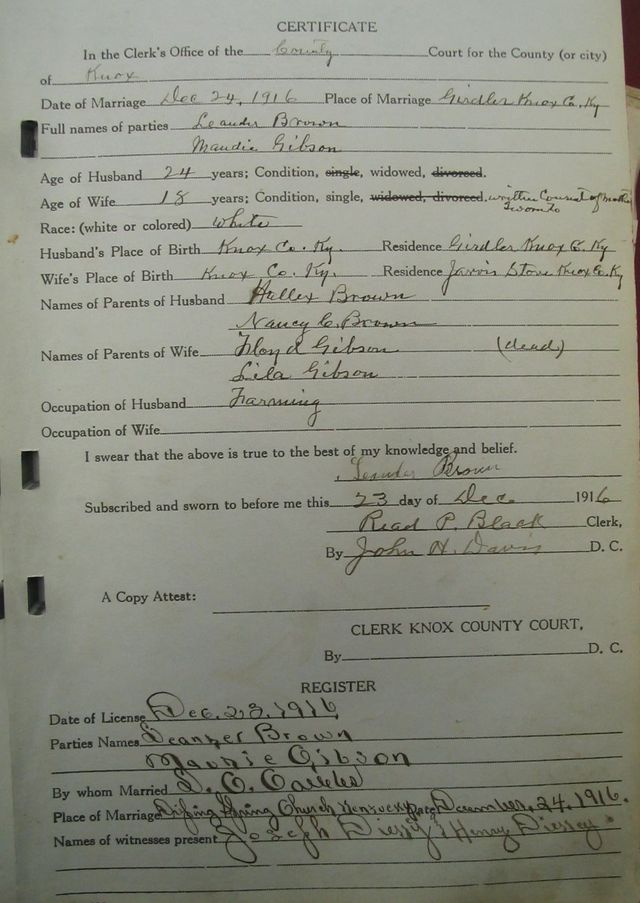 CERTIFICATE
In the Clerk's Office of the County Court for the County (or city)
of Knox
Date of Marriage Dec 24, 1916 Place of Marriage Girdler Knox Co. Ky
Full names of parties Leander Brown
Maudie Gibson
Age of Husband 24 years; Condition, single, widowed, divorced.
Age of Wife 18 years; Condition, single, widowed, divorced. written Consent of mother
Sworn to
Race: (white or colored) White
Husband's Place of Birth Knox Co. Ky. Residence Girdler Knox Co. Ky
Wife's Place of Birth Knox Co. Ky. Residence Jarvis Store Knox Co. Ky
Names of Parents of Husband Brown
Nancy C. Brown
Names of Parents of Wife Floyd Gibson (dead)
Lila Gibson
Occupation of Husband Farming
Occupation of Wife
I swear that the above is true to the best of my knowledge and belief.
Leander Brown
Subscribed and sworn to before me this 23 day of Dec. 1916
Read P. Black Clerk,
By John H. Davis D. C.
A Copy Attest:
CLERK KNOX COUNTY COURT,
By D. C.
REGISTER
Date of License Dec. 23, 1916
Parties Names Brown
Gibson
By whom Married
Place of Marriage Spring Church Kentucky Date December, 24, 1916.
Names of witnesses present Joseph & Henry